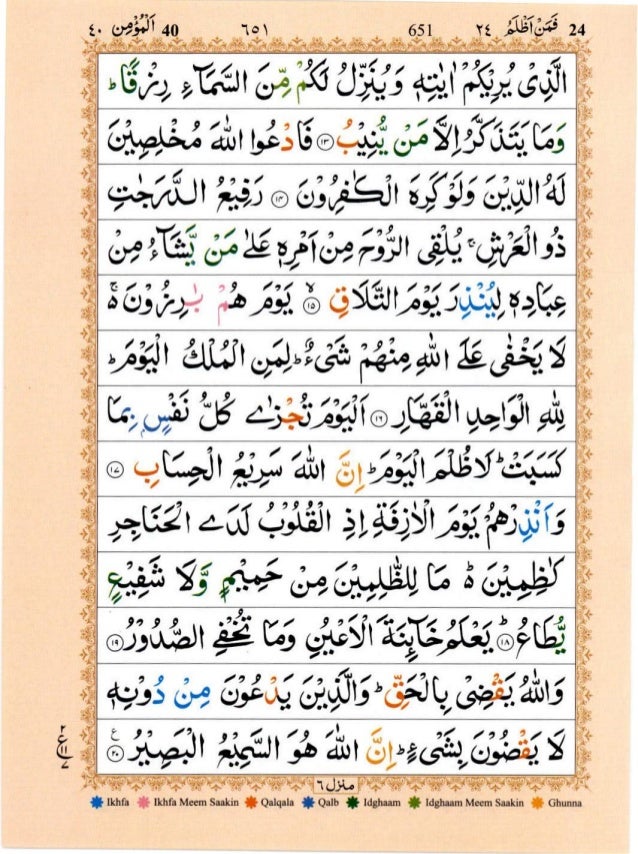 40 اَلْمُؤْمِن ٤٠ ٦٥١ 651 فَمَنْ اَظْلَمُ ٢٤ 24
الَّذِىْ يُرِيْكُمْ اٰيٰتِهٖ وَيُنَزِّلُ لَكُمْ مِّنَ السَّمَآءِ رِزْقًا ؕ
وَمَا يَتَذَكَّرُ اِلَّا مَنْ يُّنِيْبُ ﴿۱۳﴾ فَادْعُوا اللّٰهَ مُخْلِصِيْنَ
لَهُ الدِّيْنَ وَلَوْ كَرِهَ الْكٰفِرُوْنَ ﴿۱۴﴾ رَفِيْعُ الدَّرَجٰتِ
ذُو الْعَرْشِ ۚ يُلْقِى الرُّوْحَ مِنْ اَمْرِهٖ عَلٰى مَنْ يَّشَآءُ مِنْ
عِبَادِهٖ لِيُنْذِرَ يَوْمَ التَّلَاقِ ﴿ۙ۱۵﴾ يَوْمَ هُمْ بٰرِزُوْنَ ۬ۚ
لَا يَخْفٰى عَلَى اللّٰهِ مِنْهُمْ شَىْءٌ ؕ لِمَنِ الْمُلْكُ الْيَوْمَ ؕ
لِلّٰهِ الْوَاحِدِ الْقَهَّارِ ﴿۱۶﴾ اَلْيَوْمَ تُجْزٰى كُلُّ نَفْسٍۭ بِمَا
كَسَبَتْ ؕ لَا ظُلْمَ الْيَوْمَ ؕ اِنَّ اللّٰهَ سَرِيْعُ الْحِسَابِ ﴿۱۷﴾
وَاَنْذِرْهُمْ يَوْمَ الْاٰزِفَةِ اِذِ الْقُلُوْبُ لَدَى الْحَنَاجِرِ
كٰظِمِيْنَ ؕ مَا لِلظّٰلِمِيْنَ مِنْ حَمِيْمٍ وَّلَا شَفِيْعٍ
يُّطَاعُ ﴿ؕ۱۸﴾ يَعْلَمُ خَآئِنَةَ الْاَعْيُنِ وَمَا تُخْفِى الصُّدُوْرُ ﴿۱۹﴾
وَاللّٰهُ يَقْضِىْ بِالْحَقِّ ؕ وَالَّذِيْنَ يَدْعُوْنَ مِنْ دُوْنِهٖ
لَا يَقْضُوْنَ بِشَىْءٍ ؕ اِنَّ اللّٰهَ هُوَ السَّمِيْعُ الْبَصِيْرُ ﴿۲۰﴾
٢
ع
١١
٧
منزل ٦
Ikhfa Ikhfa Meem Saakin Qalqala Qalb Idghaam Idghaam Meem Saakin Ghunna